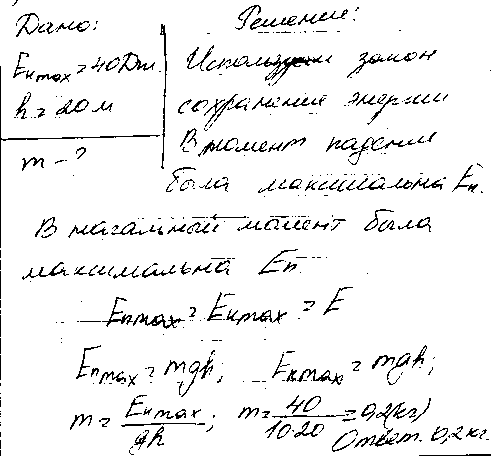 Дано: Решение:
Eк max = 40 Дж. Используя закон
h = 20 м сохранение энергии
В момент падение
m - ?
была максимальна Eк.
В начальный момент была
максимальна Eп
Eп max = Eк max = E
Eп max = mgh; Eк max = mgh;
m = Eк max / gh ; m = 40 / 10·20 = 0,2 (кг)
Ответ. 0,2 кг.